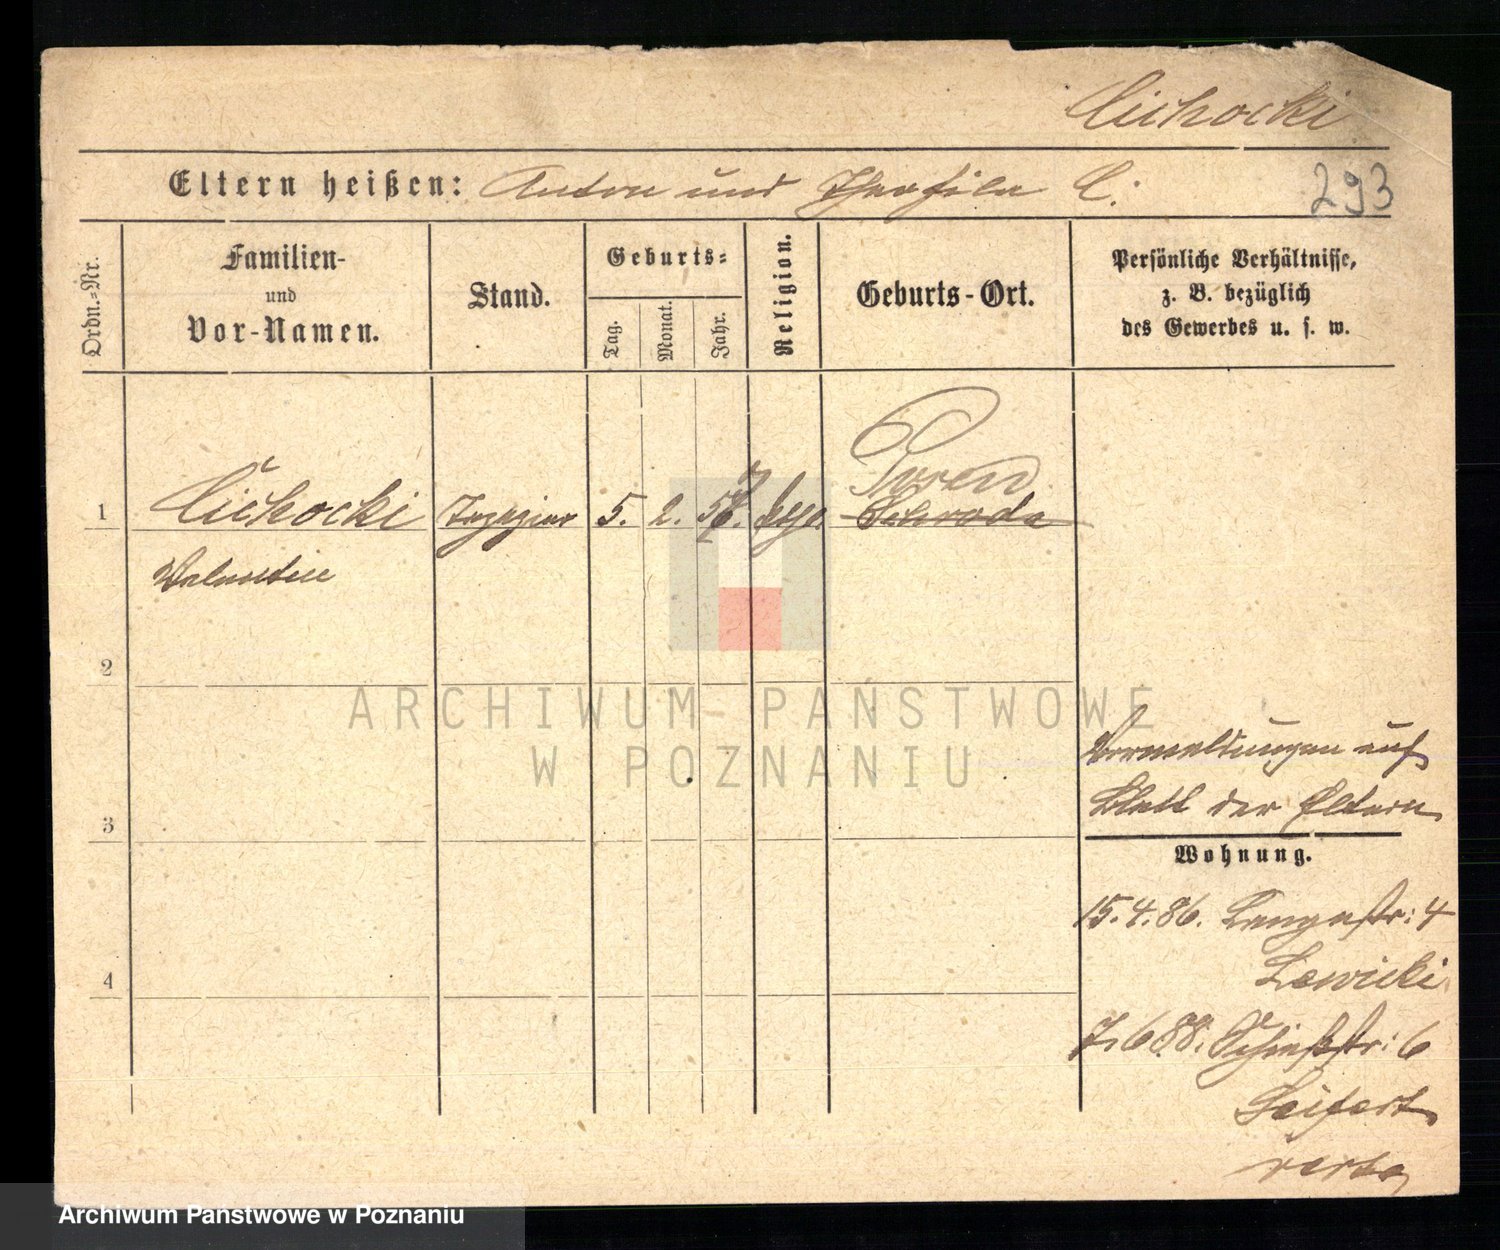 Cichocki
Eltern heißen: Anton und Theofila C.
293
Ordn.-Nr.
Familien-
und
Vor-Namen.
Stand.
Geburts-
Tag.
Monat.
Jahr.
Religion.
Geburts-Ort.
Persönliche Verhältnisse,
z. B. bezüglich
des Gewerbes u. s. w.
1
Cichocki
Tapezier
5.
2.
kath.
Schroda
Valentin
2
3
4
Vormeldungen auf
Blatt der Eltern
Wohnung.
15.4.86. Langestr: 4
Lewicki
7.6 88. Schießstr: 6
Seifert
verte
ARCHIWUM PAŃSTWOWE
W POZNANIU
Archiwum Państwowe w Poznaniu